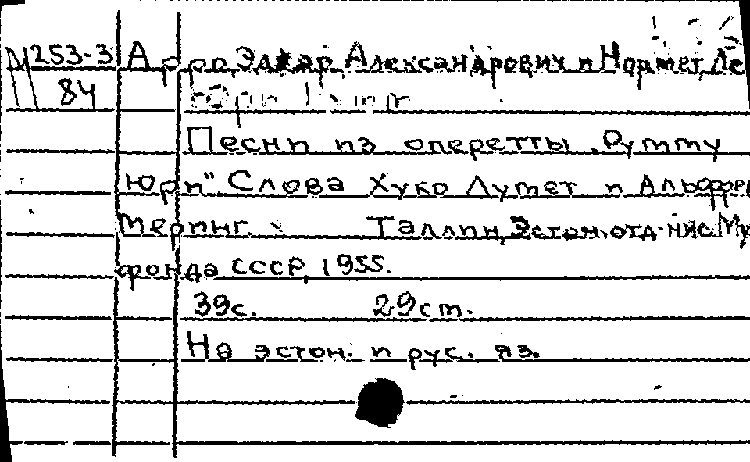 М253-3 Арро, Эдгар Александрович и Нормет, Ле
84
Песни из оперетты „Румму
Юри“ Слова Хуко Лутет и Альфред
Меринг. Таллин, Эстон. отд-ние Му
фонда СССР, 1955.
39с. 29см.
На эстон. и рус. яз.